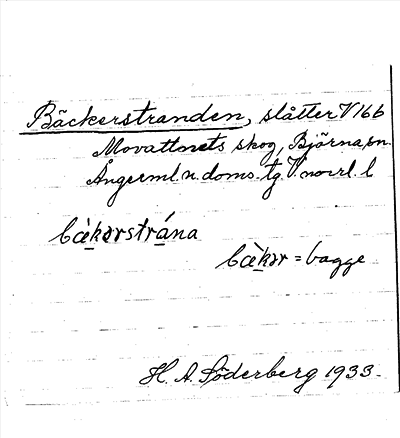 Bäckerstranden, slåtter V16b
Movattnets skog, Björna sn.
Ångerml. n. doms. tg. V. norrl. l
bæ̀kərstrána
bæ̀kər = bagge
H. A. Söderberg 1933.